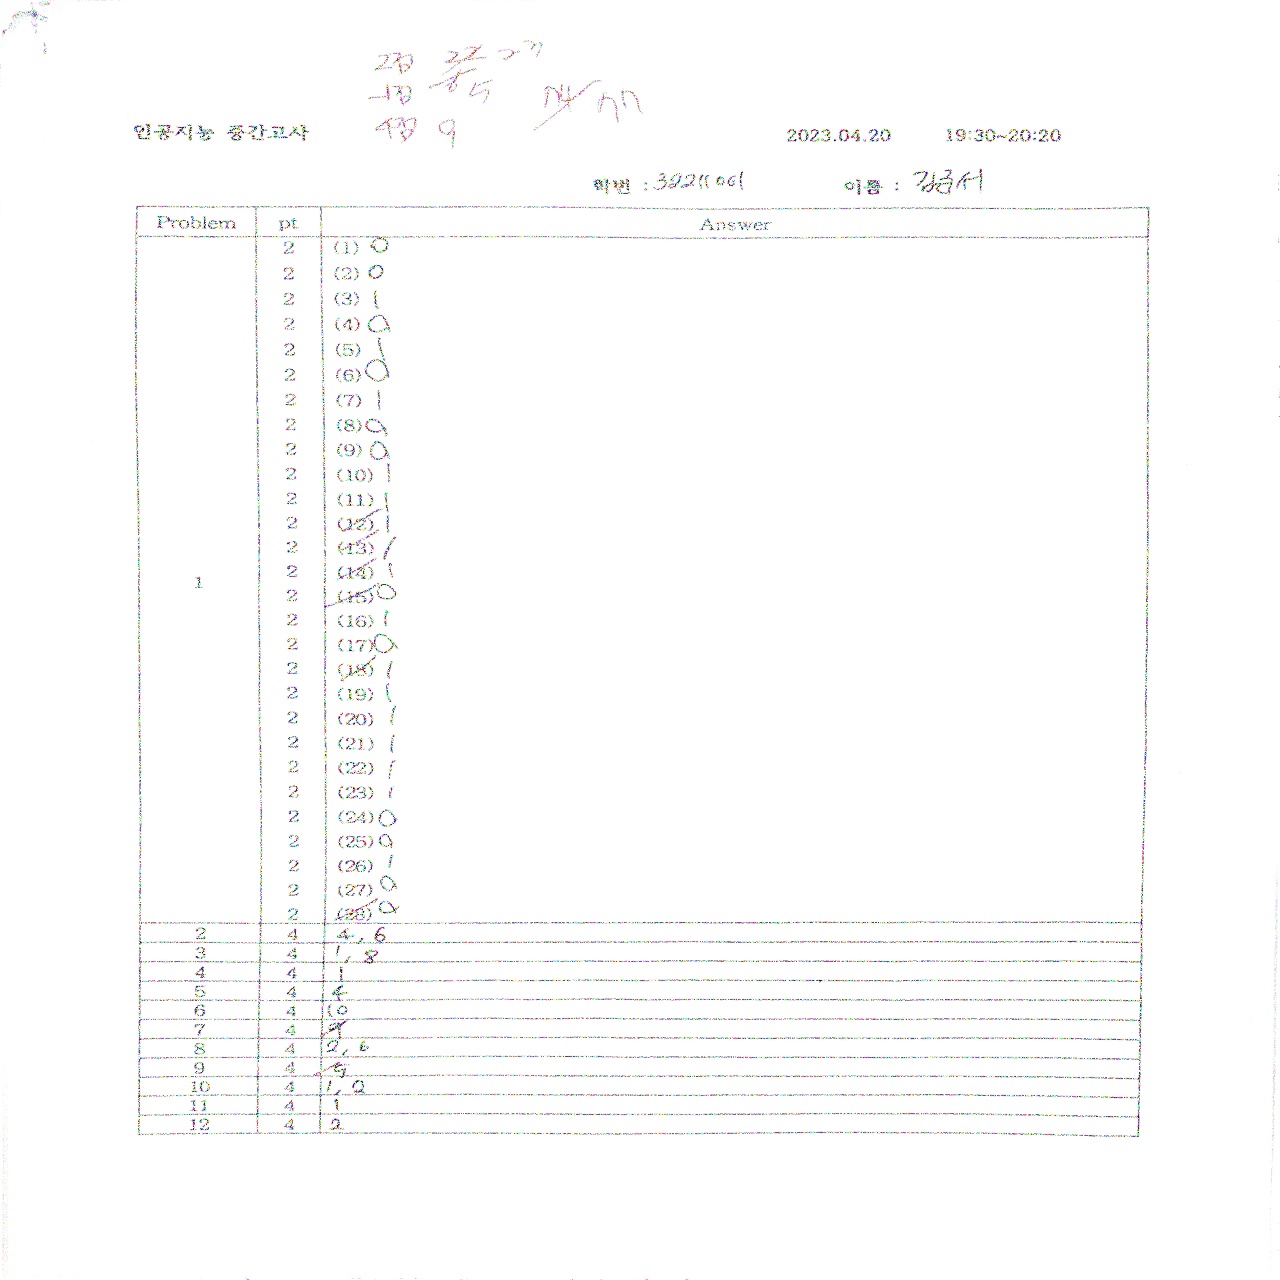 2점
-1점
4점 9
인공지능 중간고사 2023.04.20 19:30~20:20
학번 : 이름 :
Problem pt Answer
2 (1) 0
2 (2) 0
2 (3) 1
2 (4) 0
2 (5) 1
2 (6) 0
2 (7) 1
2 (8) 0
2 (9) 0
2 (10) 1
2 (11) 1
2 (12) 1
2 (13) 1
2 (14) 1
1
2 (15) 0
2 (16) 1
2 (17) 0
2 (18) 1
2 (19) 1
2 (20) 1
2 (21) 1
2 (22) 1
2 (23) 1
2 (24) 0
2 (25) 0
2 (26) 1
2 (27) 0
2 (28) 0
2 4 4, 6
3 4 1, 8
4 4 1
5 4 4
6 4 10
7 4
8 4 2, 6
9 4 5
10 4 1, 2
11 4 1
12 4 2